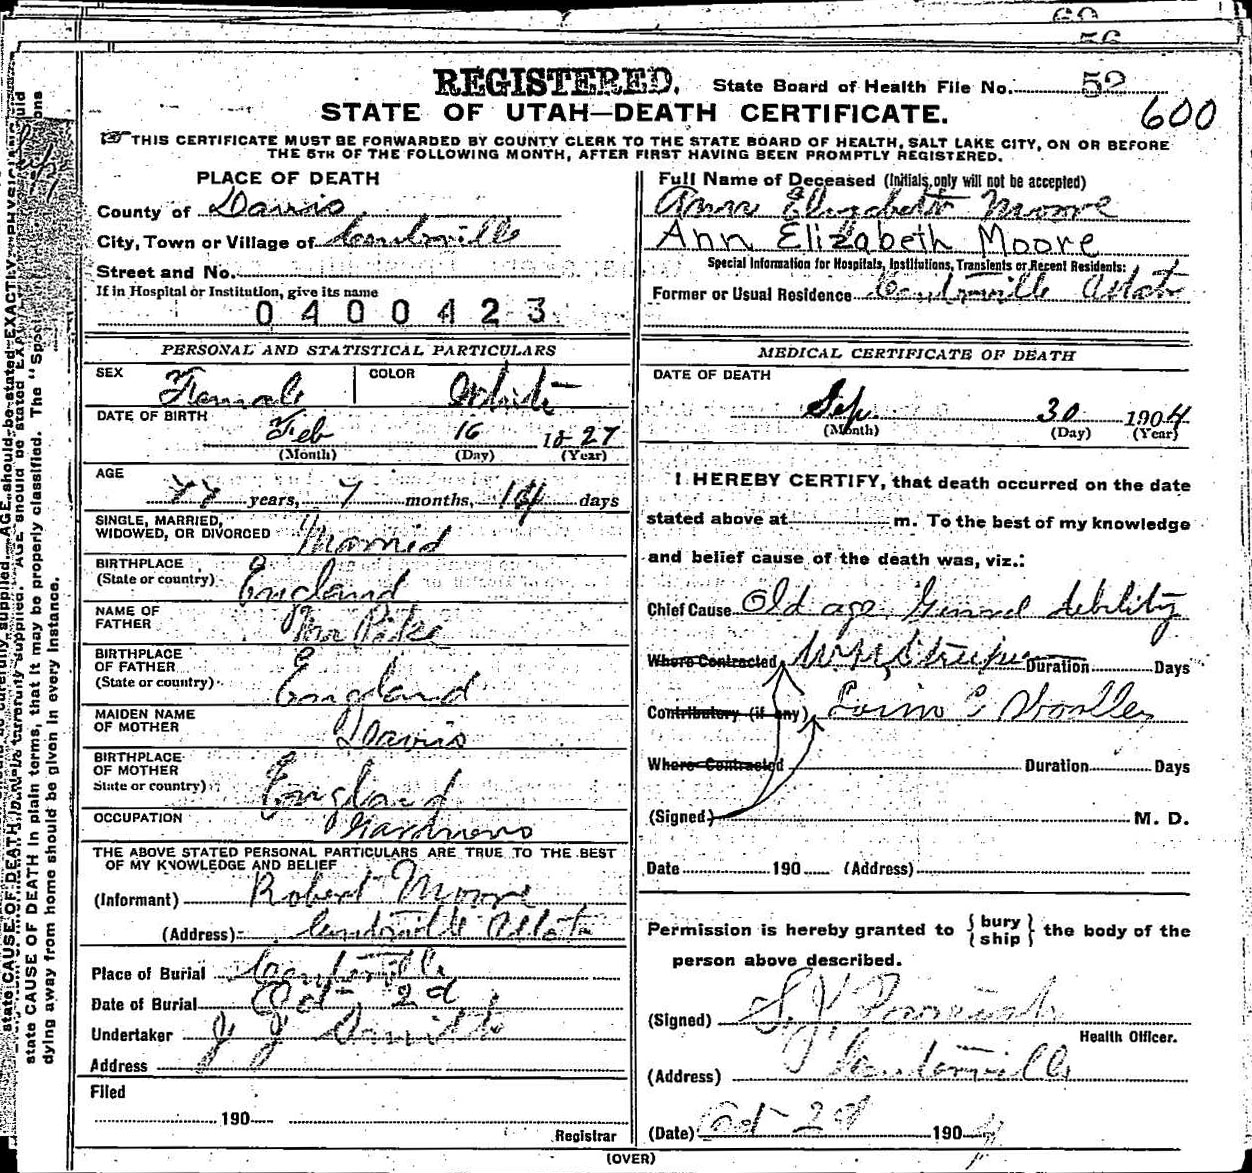 60
56
REGISTERED. State Board of Health File No. 52
STATE OF UTAH—DEATH CERTIFICATE. 600
☞ THIS CERTIFICATE MUST BE FORWARDED BY COUNTY CLERK TO THE STATE BOARD OF HEALTH, SALT LAKE CITY, ON OR BEFORE
THE 5TH OF THE FOLLOWING MONTH, AFTER FIRST HAVING BEEN PROMPTLY REGISTERED.
PLACE OF DEATH
County of Davis
City, Town or Village of Centerville
Street and No.
If in Hospital or Institution, give its name
0400423
PERSONAL AND STATISTICAL PARTICULARS
SEX Female COLOR White
DATE OF BIRTH
Feb 16 1827
(Month) (Day) (Year)
AGE
77 years, 7 months, 14 days
SINGLE, MARRIED,
WIDOWED, OR DIVORCED Married
BIRTHPLACE
(State or country) England
NAME OF
FATHER Pike
BIRTHPLACE
OF FATHER
(State or country) England
MAIDEN NAME
OF MOTHER Davis
BIRTHPLACE
OF MOTHER
State or country) England
OCCUPATION
THE ABOVE STATED PERSONAL PARTICULARS ARE TRUE TO THE BEST
OF MY KNOWLEDGE AND BELIEF
(Informant) Robert Moore
(Address) Centerville Utah
Place of Burial Centerville
Date of Burial Oct 2d
Undertaker J J Smith
Address
Filed
190
Registrar
Full Name of Deceased (Initials only will not be accepted)
Ann Elizabeth Moore
Ann Elizabeth Moore
Special Information for Hospitals, Institutions, Transients or Recent Residents:
Former or Usual Residence Centerville Utah
MEDICAL CERTIFICATE OF DEATH
DATE OF DEATH
Sep 30 1904
(Month) (Day) (Year)
I HEREBY CERTIFY, that death occurred on the date
stated above at m. To the best of my knowledge
and belief cause of the death was, viz.:
Chief Cause Old age General debility
Where Contracted Duration Days
Contributory (if any)
Where Contracted Duration Days
(Signed) M. D.
Date 190 (Address)
Permission is hereby granted to { bury ship } the body of the
person above described.
(Signed)
Health Officer.
(Address) Centerville
(Date) Oct 2d 1904
(OVER)
state CAUSE OF DEATH in plain terms, that it may be properly classified. The "Spec
dying away from home should be given in every instance.